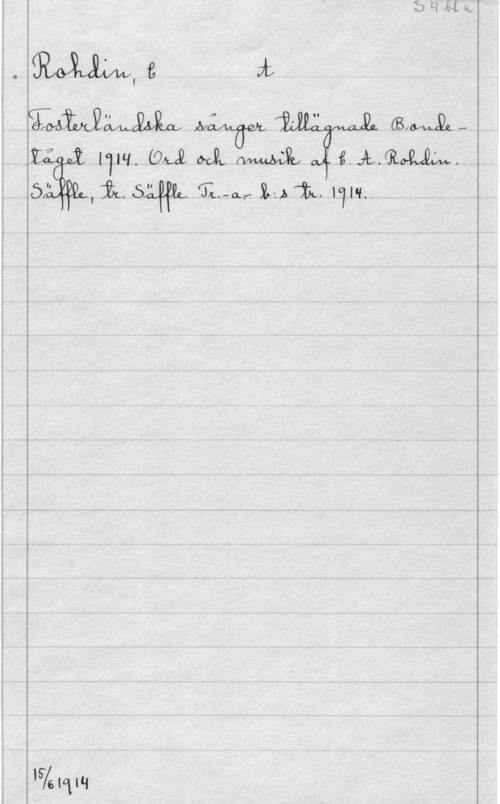 Rohdin, C A
Fosterländska sånger tillägnade Bonde-
tåget 1914. Ord och musik af C. A. Rohdin.
Säffle, tr. Säffle Tr.-a.- b:s tr. 1914.
15/6 1914